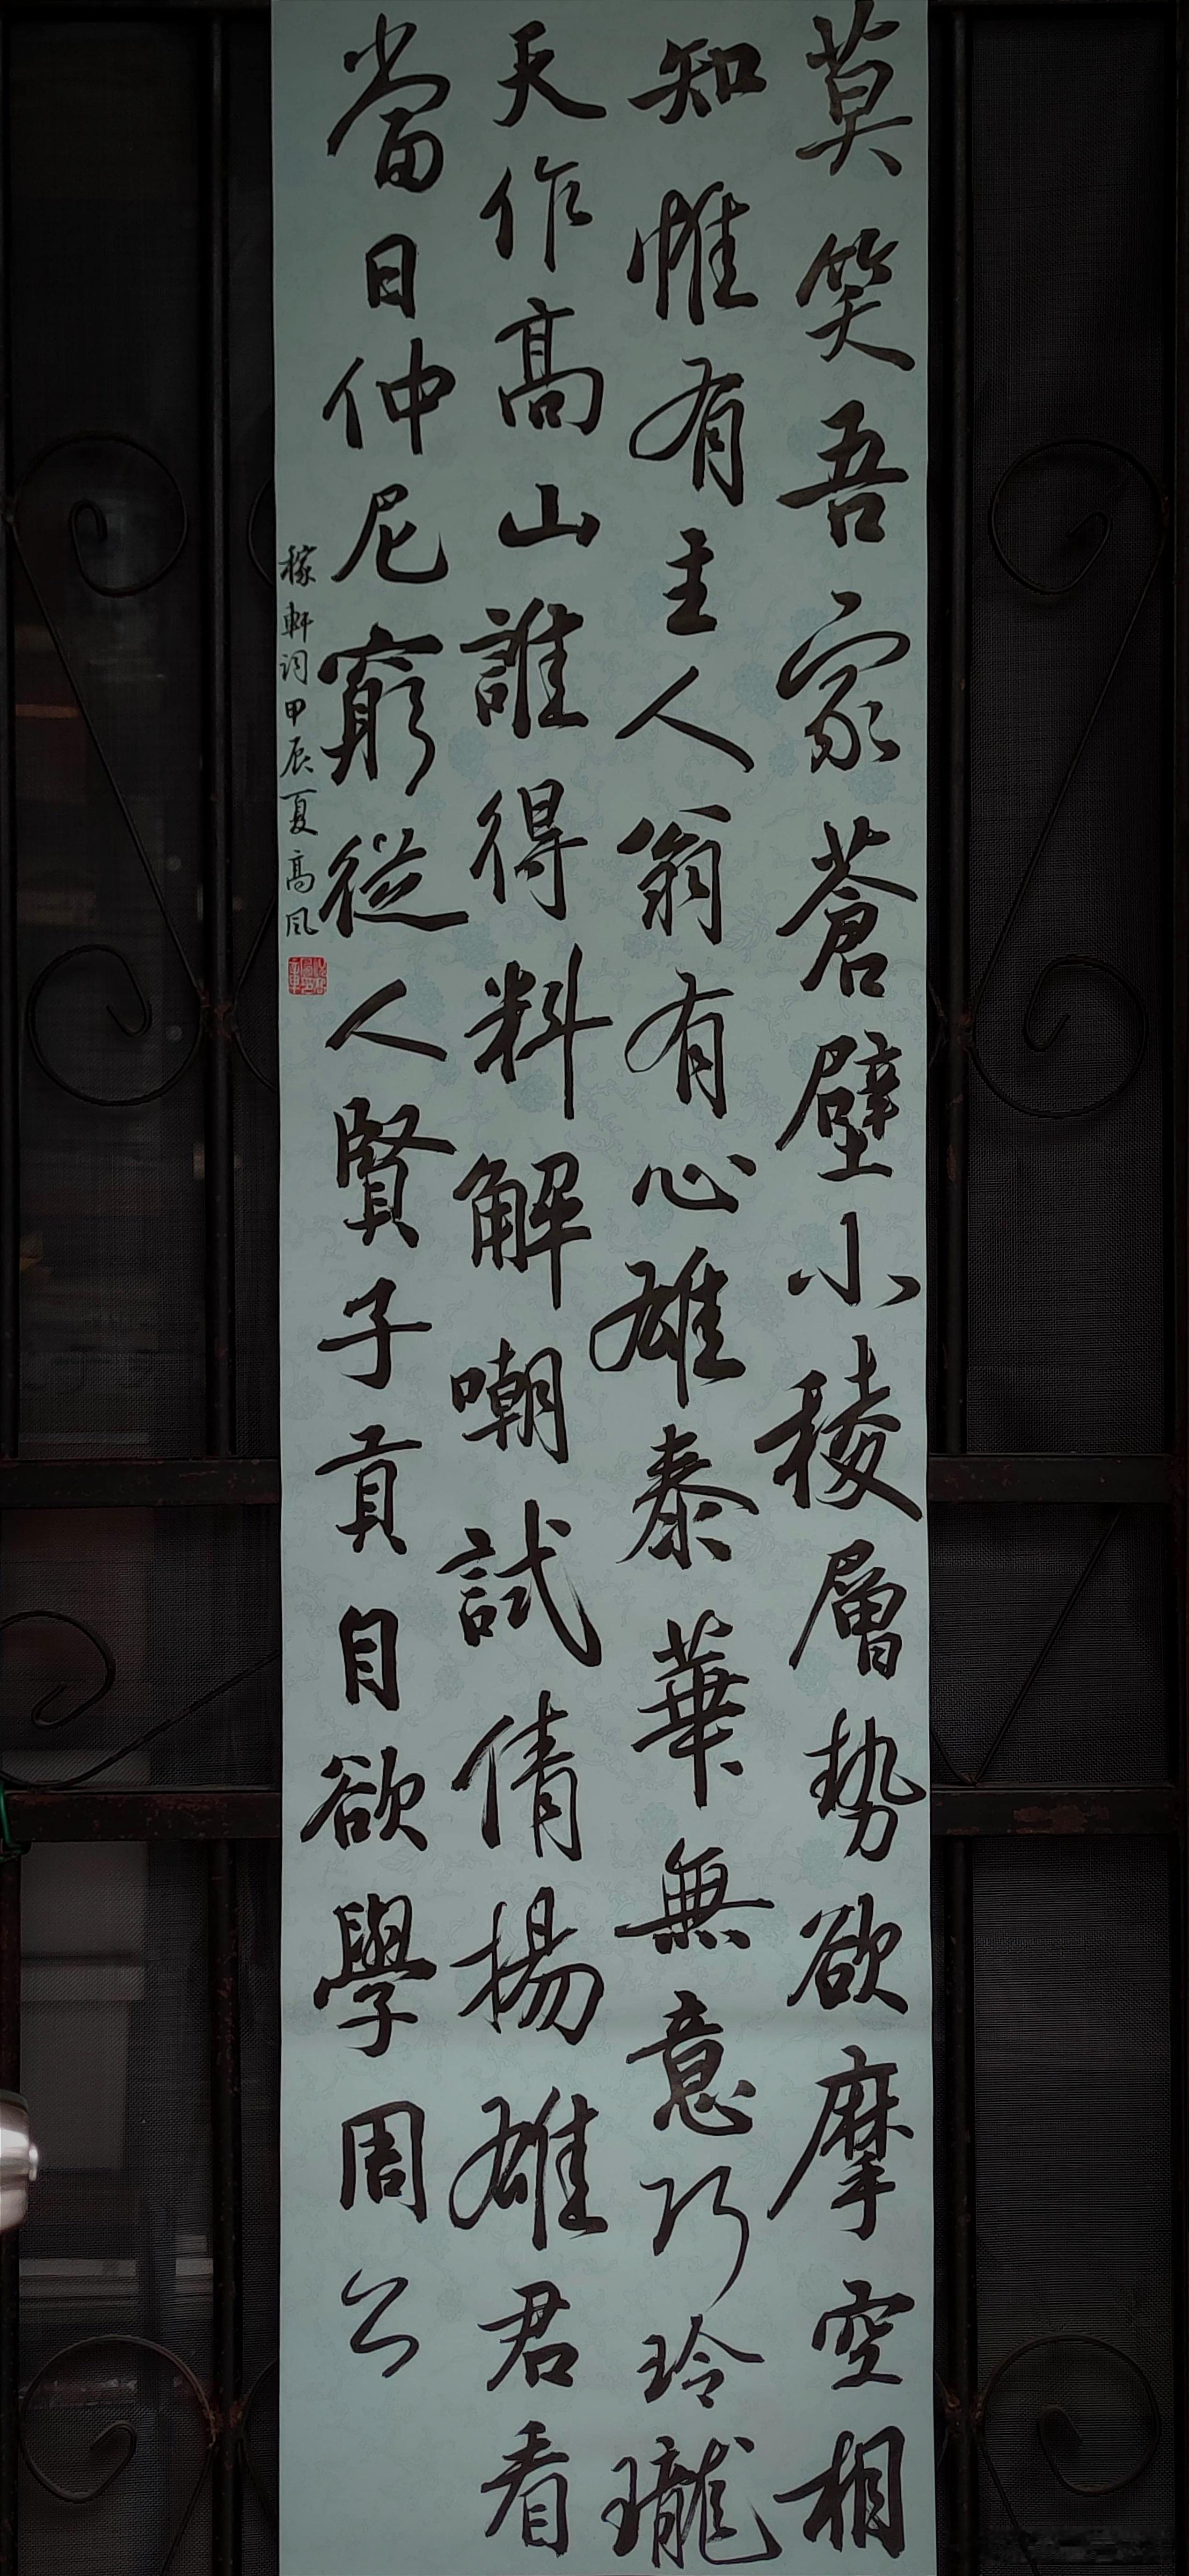 莫笑吾家蒼壁小稜層勢欲摩空相
知惟有主人翁有心雄泰華無意巧玲瓏
天作高山誰得料解嘲試倩揚雄君看
當日仲尼窮從人賢子貢自欲學周公
稼軒詞甲辰夏高風